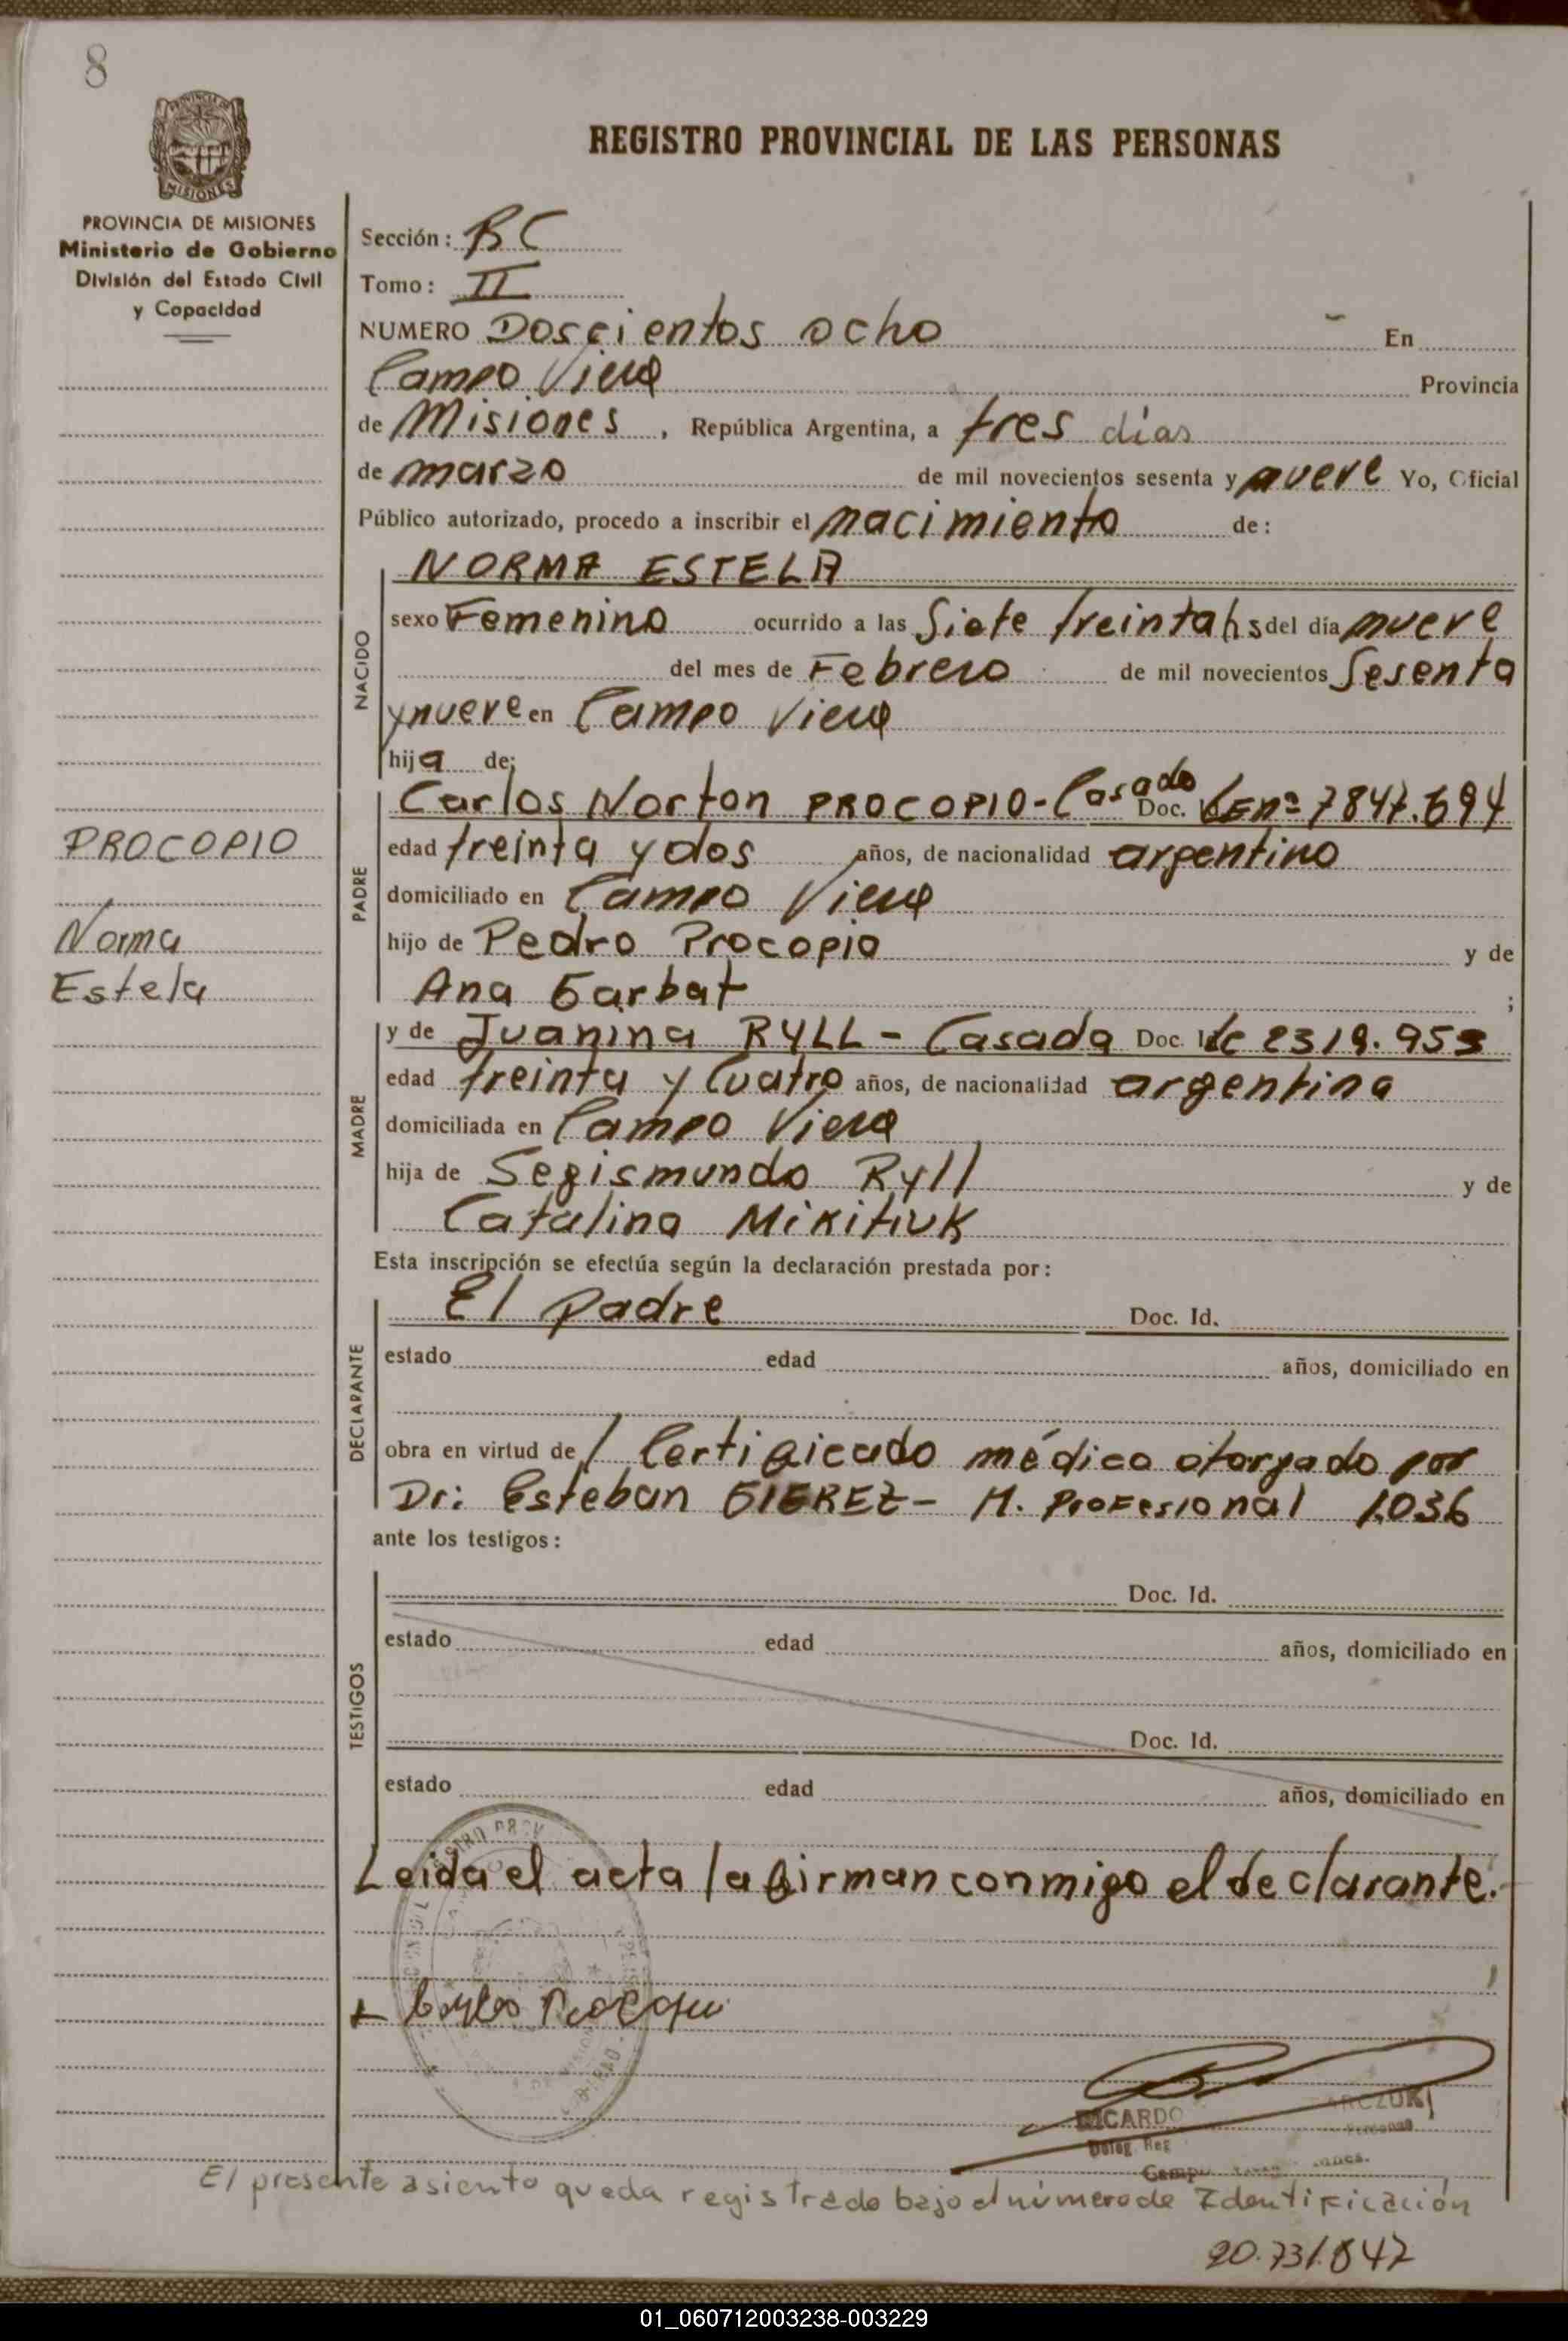 8
PROVINCIA DE
MISIONES
REGISTRO PROVINCIAL DE LAS PERSONAS
PROVINCIA DE MISIONES
Ministerio de Gobierno
División del Estado Civil
y Capacidad
Sección: BC
Tomo: II
NUMERO Doscientos ocho En
Campo Viera Provincia
de Misiones, República Argentina, a tres días
de marzo de mil novecientos sesenta y nueve Yo, Oficial
Público autorizado, procedo a inscribir el nacimiento de:
NACIDO
NORMA ESTELA
sexo Femenino ocurrido a las Siete treinta hs del día nueve
del mes de Febrero de mil novecientos Sesenta
y nueve en Campo Viera
hija de:
PADRE
Carlos Norton PROCOPIO - Casado Doc. LE nº 7847.694
PROCOPIO
edad treinta y dos años, de nacionalidad argentino
domiciliado en Campo Viera
Norma
hijo de Pedro Procopio y de
Estela
Ana Garbat ;
MADRE
y de Juanina RYLL - Casada Doc. Id. LC 2319.953
edad treinta y Cuatro años, de nacionalidad argentina
domiciliada en Campo Viera
hija de Segismundo Ryll y de
Catalina Mikitiuk
Esta inscripción se efectúa según la declaración prestada por:
DECLARANTE
El padre Doc. Id.
estado edad años, domiciliado en
obra en virtud de / Certificado médico otorgado por
Dr: Esteban GIEREZ - M. Profesional 1.036
ante los testigos:
TESTIGOS
Doc. Id.
estado edad años, domiciliado en
Doc. Id.
estado edad años, domiciliado en
Leida el acta la firman conmigo el declarante.
RICARDO ARCZUK
Deleg. Reg. Personas
Campo
El presente asiento queda registrado bajo el número de Identificación
20.731.847
01_060712003238-003229